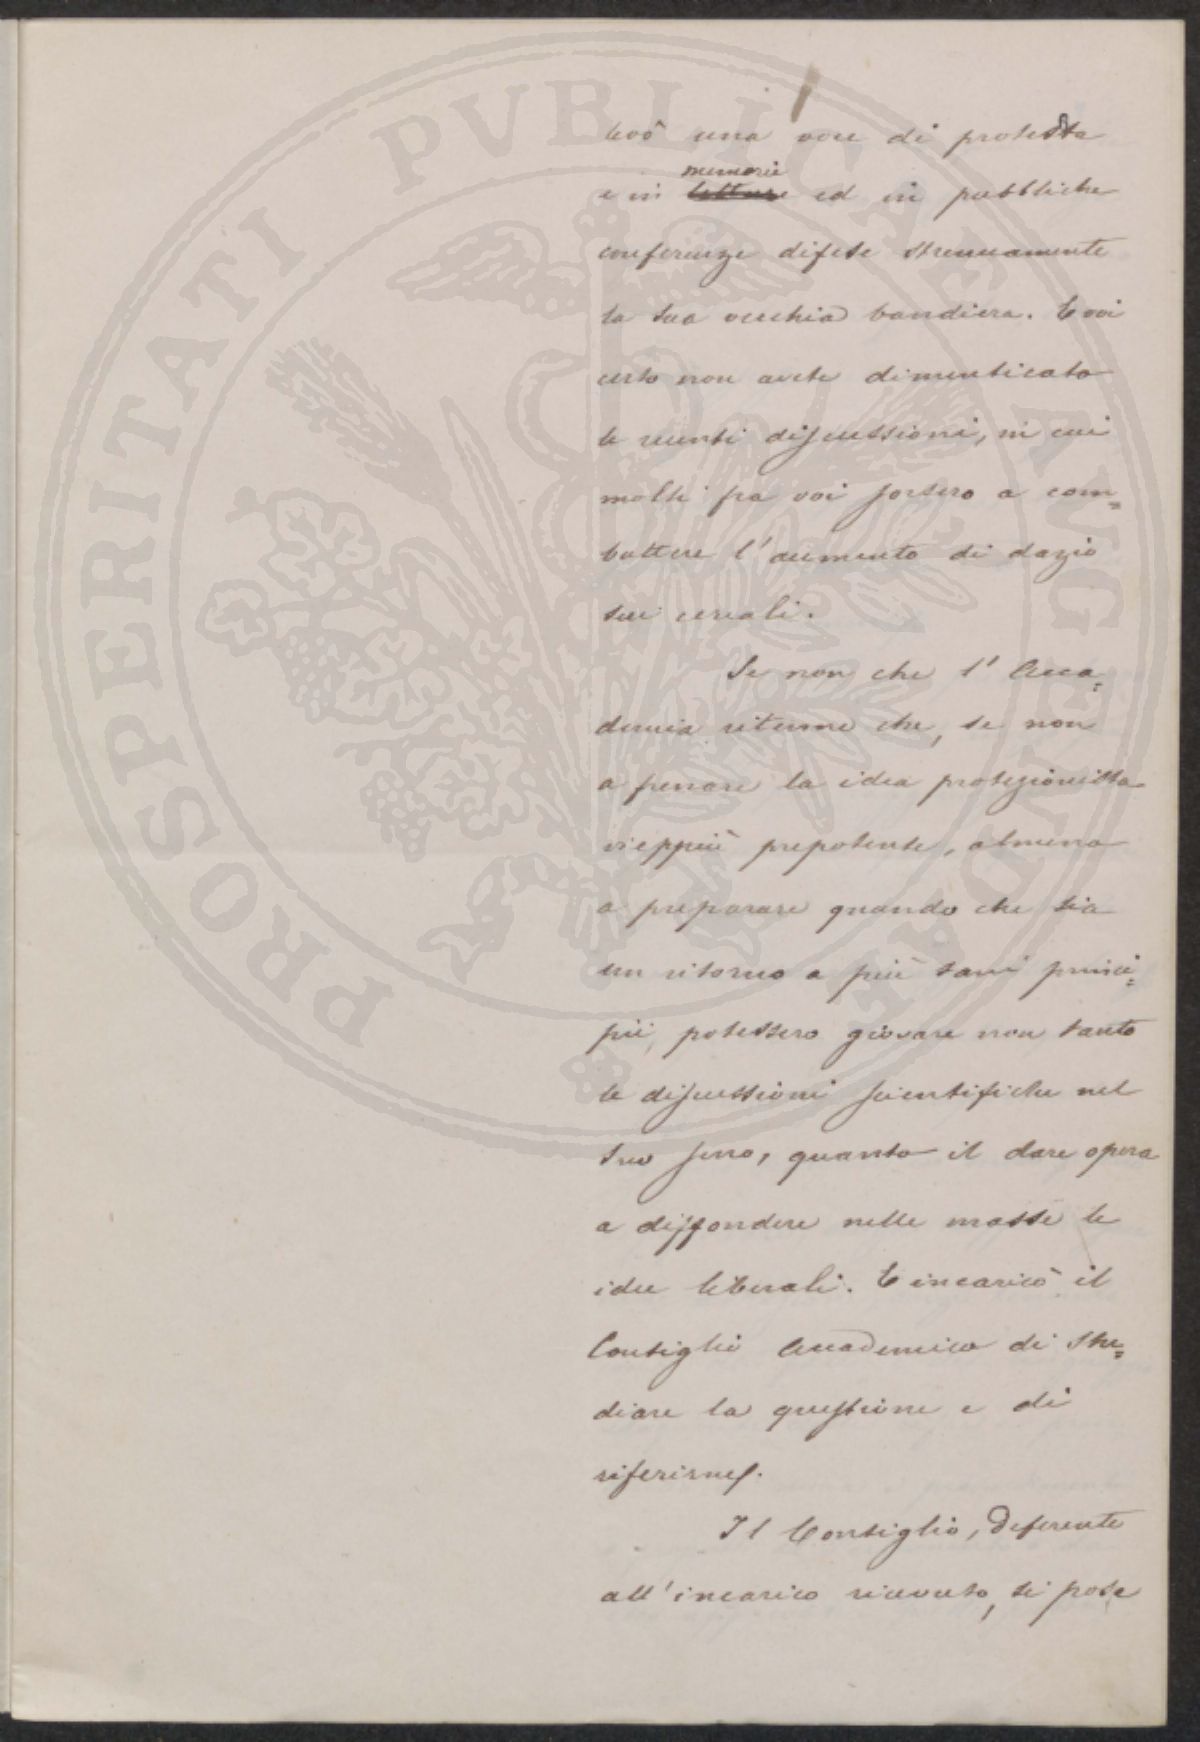 levò una voce di protesta
memorie
e in letture ed in pubbliche
conferenze difese strenuamente
la sua vecchia bandiera. E voi
certo non avete dimenticato
le recenti discussioni, in cui
molti fra voi sorsero a com=
battere l'aumento di dazio
sui cereali.
Se non che l'Acca=
demia ritenne che, se non
a frenare la idea protezionista
vieppiù prepotente, almeno
a preparare quando che sia
un ritorno a più sani princi=
pii, potessero giovare non tanto
le discussioni scientifiche nel
suo seno, quanto il dare opera
a diffondere nelle masse le
idee liberali. E incaricò il
Consiglio Accademico di stu=
diare la questione e di
riferirne.
Il Consiglio, deferente
all'incarico ricevuto, si pose
PROSPERITATI PVBLICAE AVGENDAE